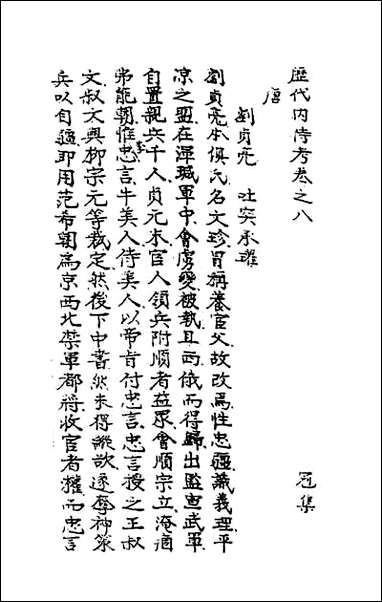 歷代内侍考卷之八 冠集
唐
劉貞亮 吐突承璀
劉貞亮本俱氏名文珍冐稱養宦父故改焉性忠疆識義理平
凉之盟在渾瑊軍中會虜變被執且西俄而得歸出監宣武軍
自置親兵千人貞元末宦人領兵附順者益眾會順宗立淹痼
弗能朝惟李忠言牛美人侍美人以帝旨付忠言忠言授之王叔
文叔文與柳宗元等裁定然後下中書然未得縱欲遂奪神策
兵以自彊即用范希朝為京西北禁軍都將收宦者權而忠言